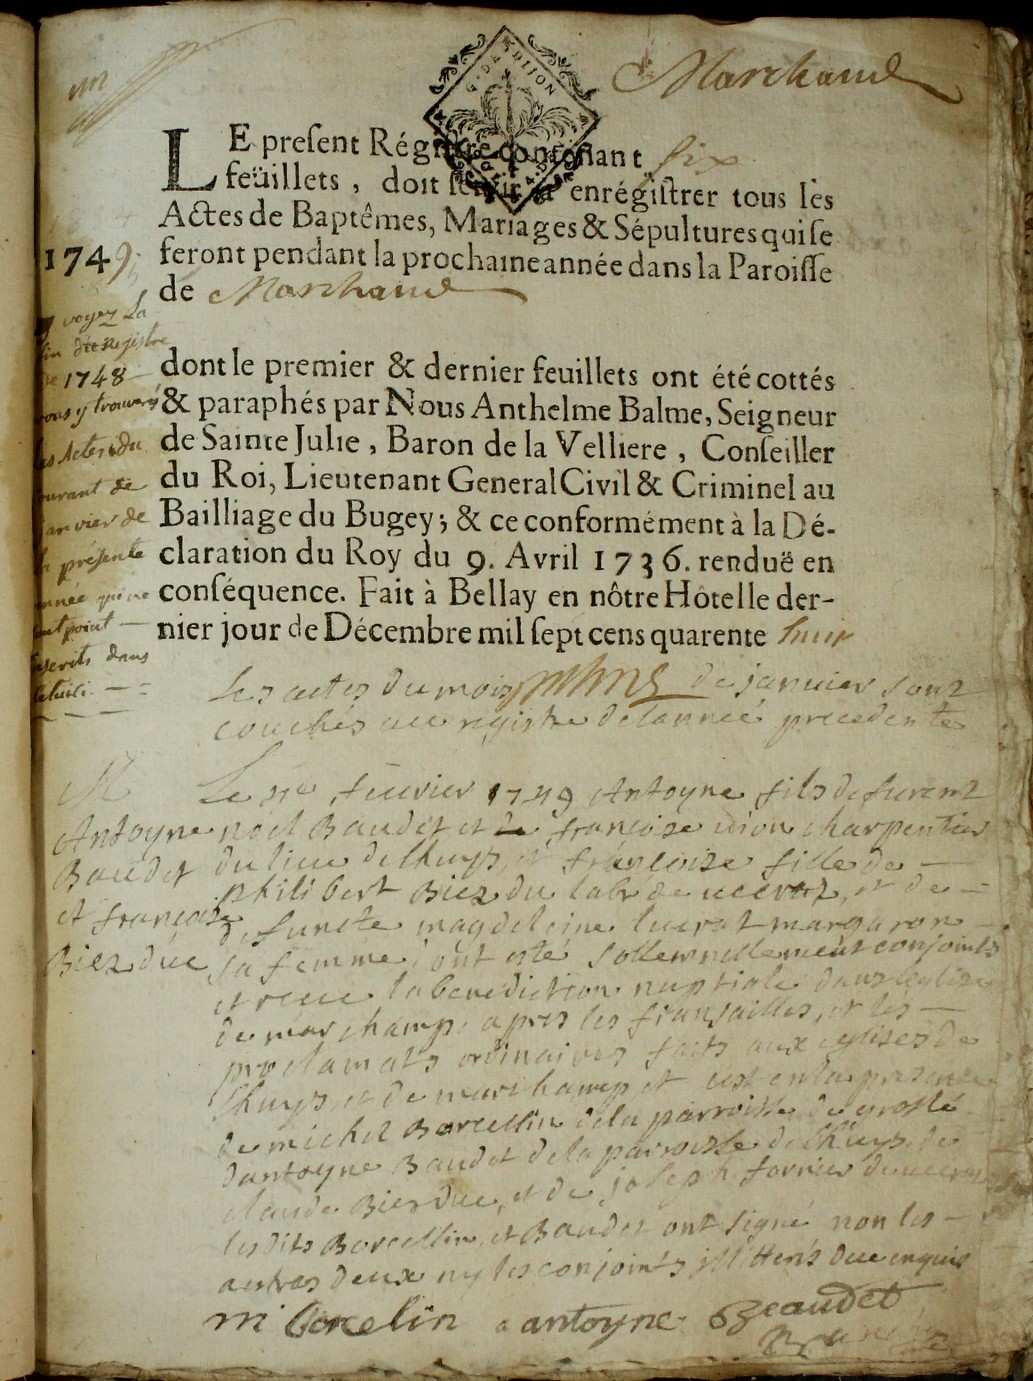 Marchand
G. DE DIJON
LE preſent Régiſtre contenant ſix
feüillets, doit ſervir à enrégiſtrer tous les
Actes de Baptêmes, Mariages & Sépultures qui ſe
1749
feront pendant la prochaine année dans la Paroiſſe
de Marchand
voyez la
fin de Registre
de 1748
vous y trouverés
les Actes du
courant de
Janvier de
la présente
année qui ne
sont point
inscrits dans
celuici
dont le premier & dernier feuillets ont été cottés
& paraphés par Nous Anthelme Balme, Seigneur
de Sainte Julie, Baron de la Velliere, Conſeiller
du Roi, Lieutenant General Civil & Criminel au
Bailliage du Bugey; & ce conformément à la Dé-
claration du Roy du 9. Avril 1736. renduë en
conſéquence. Fait à Bellay en nôtre Hôtel le der-
nier jour de Décembre mil ſept cens quarente huit
Les actes du mois de janvier sont
couchés au registre de lannée precedente
M
Antoyne
Baudet
et françoise
Biez duc
Le fevrier 1749 Antoyne fils de furent
noel Baudet et de françoise dion charpentier
du lieu de lhuys, et françoise fille de
philibert Biez du et de
defuncte magdeleine lucrat margaron
sa femme, ont esté sollemnellement conjoints
et receu la benediction nuptiale dans leglise
de marchamp, apres les fiansailles, et les
proclamats ordinaires faits aux eglises de
lhuys, et de marchamp et cest en la presence
de michel Borcellin de la parroisse de groslé
dantoyne Baudet de la parroisse de lhuys, de
claude Biez duc, et de joseph
lesdits Borcellin, et Baudet ont signé non les
autres deux ny les conjoints illitterés de enquis
m borcelin antoyne Beaudet